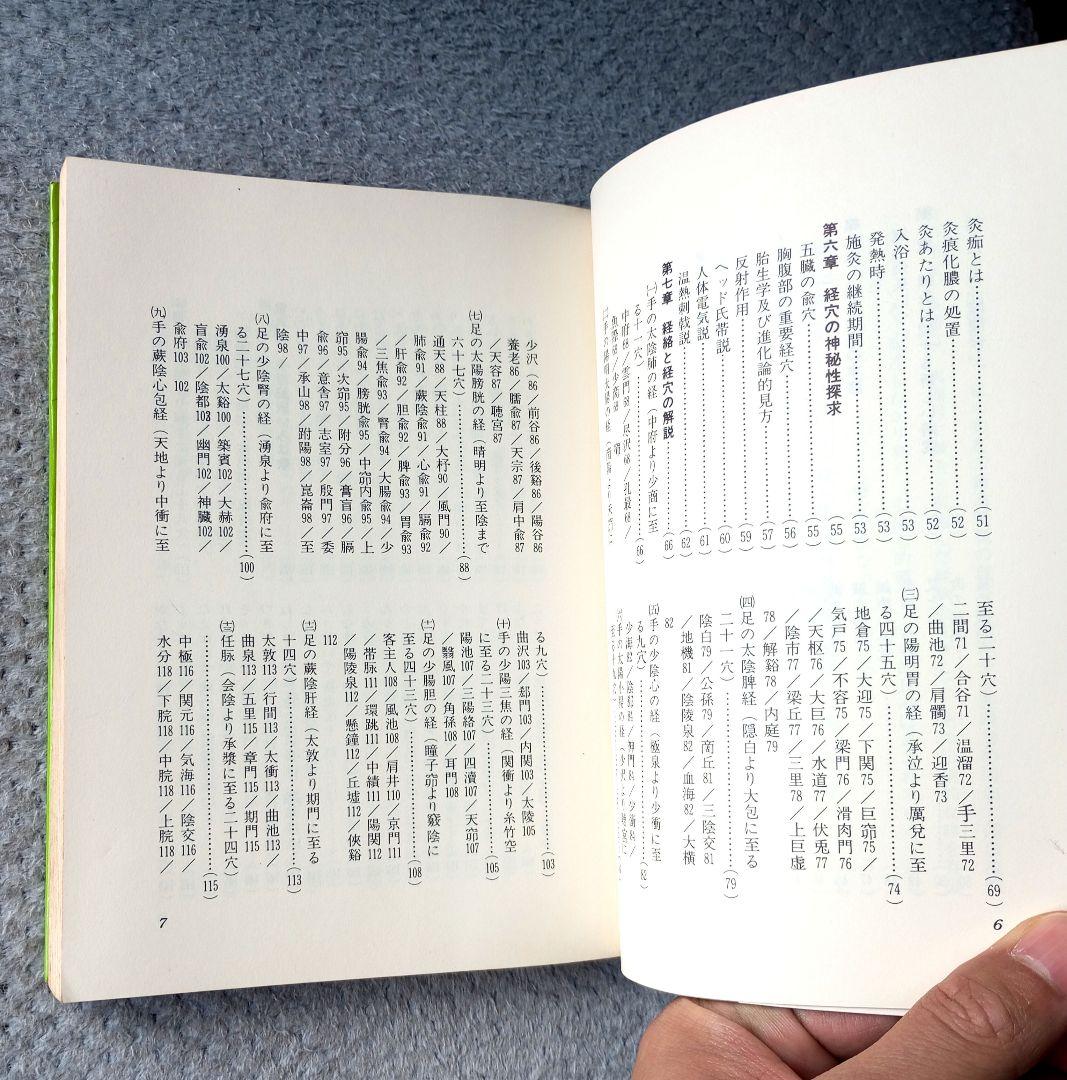 灸痂とは…………(51)
灸痕化膿の処置…………(52)
灸あたりとは…………(52)
入浴…………(53)
発熱時…………(53)
施灸の継続期間…………(53)
第六章 経穴の神秘性探求 (55)
五臓の兪穴…………(55)
胸腹部の重要経穴…………(56)
胎生学及び進化論的見方…………(57)
反射作用…………(59)
ヘッド氏帯説…………(60)
人体電気説…………(61)
温熱刺戟説…………(62)
第七章 経絡と経穴の解説 (66)
㈠手の太陰肺の経(中府より少商に至
る十一穴)…………(66)
至る二十穴)…………(69)
二間71/合谷71/温溜72/手三里72
/曲池72/肩髃73/迎香73
㈢足の陽明胃の経(承泣より厲兌に至
る四十五穴)…………(74)
地倉75/大迎75/下関75/巨窌75/
気戸75/不容75/梁門76/滑肉門76
/天枢76/大巨76/水道77/伏兎77
/陰市77/梁丘77/三里78/上巨虚
78/解谿78/内庭79
㈣足の太陰脾の経(隠白より大包に至る
二十一穴)…………(79)
陰白79/公孫79/商丘81/三陰交81
/地機81/陰陵泉82/血海82/大横
82
㈤手の少陰心の経(極泉より少衝に至
る九穴)…………(82)
6
少沢(86/前谷86/後谿86/陽谷86
養老86/臑兪87/天宗87/肩中兪87
/天容87/聴宮87
㈦足の太陽膀胱の経(晴明より至陰まで
六十七穴)…………(88)
通天88/天柱88/大杼90/風門90/
肺兪91/蕨陰兪91/心兪91/膈兪92
/肝兪92/胆兪92/脾兪93/胃兪93
/三焦兪93/腎兪94/大腸兪94/少
腸兪94/膀胱兪95/中窌内兪95/上
窌95/次窌95/附分96/膏盲96/膈
兪96/意舎97/志室97/殷門97/委
中97/承山98/跗陽98/崑崙98/至
陰98/
㈧足の少陰腎の経(湧泉より兪府に至
る二十七穴)…………(100)
湧泉100/太谿100/築賓102/大赫102/
盲兪102/陰都102/幽門102/神臓102/
兪府103 102
㈨手の蕨陰心包経(天地より中衝に至
る九穴)…………(103)
曲沢103/郄門103/内関103/太陵105
㈩手の少陽三焦の経(関衝より糸竹空
に至る二十三穴)…………(105)
陽池107/三陽絡107/四瀆107/天窌107
/翳風107/角孫108/耳門108
㈩㈠足の少腸胆の経(瞳子窌より竅陰に
至る四十三穴)…………(108)
客主人108/風池108/肩井110/京門111
/帯脈111/環跳111/中瀆111/陽関112
/陽陵泉112/懸鐘112/丘墟112/俠谿
112
㈩㈡足の蕨陰肝経(太敦より期門に至る
十四穴)…………(113)
太敦113/行間113/太衝113/曲池113/
曲泉113/五里115/章門115/期門115
㈩㈢任脈(会陰より承漿に至る二十四穴)
…………(115)
中極116/関元116/気海116/陰交116/
水分118/下脘118/中脘118/上脘118/
7